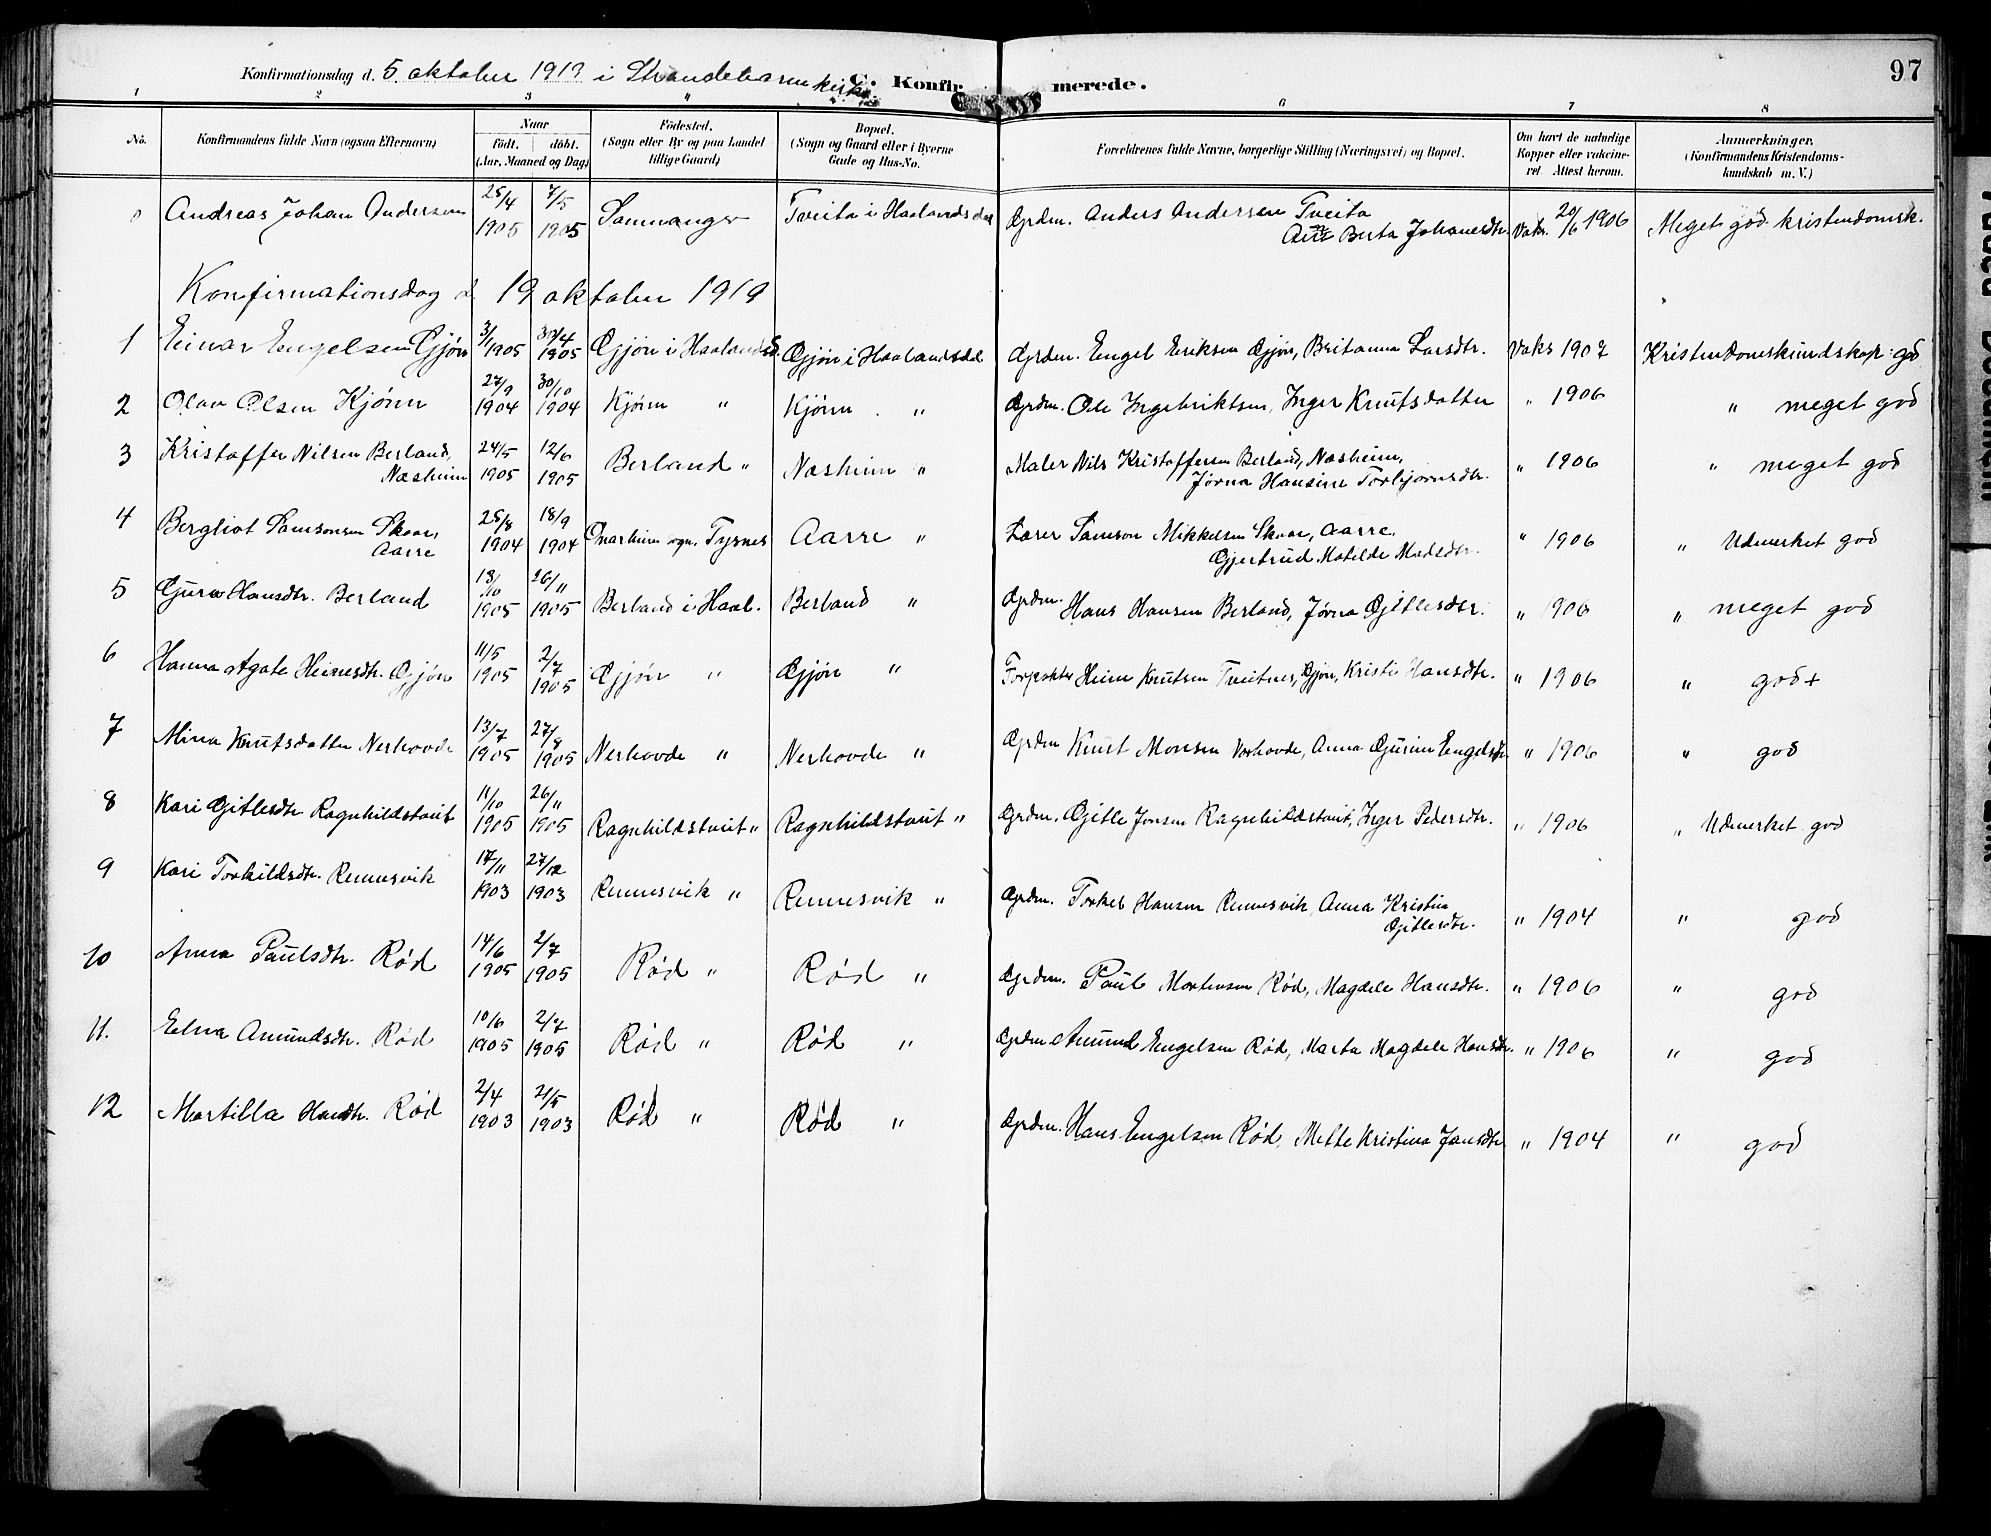 97
Konfirmationsdag d. 5 oktober 1919 i Strandebarm kirke.
C. Konfirmerede.
1 2 3 " 6 7 8
No. Konfirmandens fulde Navn (ogsaa Efternavn) Naar født. døbt. (Aar, Maaned og Dag) Födested. (Sogn eller By og paa Landet tillige Gaard) Bopæl. (Sogn og Gaard eller i Byerne Gade og Hus-No. Forældrenes fulde Navne, borgerlige Stilling (Næringsvei) og Bopæl. Om havt de naturlige Kopper eller vakcineret. Attest herom. Anmærkninger. (Konfirmandens Kristendomskundskab m. V.)
Andreas Johan Andersen 25/4 1905 7/5 1905 Samnanger Tveita i Haalandsdal Grdm. Anders Andersen Tveita Berta Johanesdtr. Vakc. 20/6 1906 Meget god kristendomsk.
Konfirmationsdag d. 19 oktober 1919
1 Einar Engelsen Gjøn 3/1 1905 30/4 1905 Gjøn i Haalandsd. Gjøn i Haalandsdal Grdm. Engel Eriksen Gjøn, Britanna Larsdtr. Vaks 1907 Kristendomskundskap: god
2 Olav Olsen Kjønn 27/9 1904 30/10 1904 Kjønn " Kjønn " Grdm. Ole Ingebriktsen, Inger Knutsdatter " 1906 " meget god
3 Kristoffer Nilsen Berland, Næsheim 24/5 1905 12/6 1905 Berland " Næsheim " Maler Nils Kristoffersen Berland, Næsheim, Jørna Hansine Torbjørnsdtr. " 1906 " meget god
4 Bergliot Samsonsen Skaar, Aarre 25/8 1904 18/9 1904 Onarheim sogn, Tysnes Aarre " Lærer Samson Mikkelsen Skaar, Aarre, Gjertrud Matilde Madsdtr. " 1906 " Udmerket god
5 Guro Hansdtr. Berland 13/10 1905 26/11 1905 Berland i Haal. Berland " Grdm. Hans Hansen Berland, Jørna Gjitlesdtr. " 1906 " meget god
6 Hanna Agate Heinesdtr. Gjøn 11/5 1905 2/7 1905 Gjøn " Gjøn " Forpakter Heine Knutsen Tveitnes, Gjøn, Kristi Hansdtr. " 1906 " god+
7 Mina Knutsdatter Nerhovde 13/7 1905 27/8 1905 Nerhovde " Nerhovde " Grdm Knut Monsen Nerhovde, Anna Gurine Engelsdtr " 1906 " god
8 Kari Gjitlesdtr Ragnhildstveit 11/10 1905 26/11 1905 Ragnhildstveit " Ragnhildstveit " Grdm. Gjitle Jonsen Ragnhildstveit, Inger Pedersdtr. " 1906 " Udmerket god
9 Kari Torkildsdtr. Rennesvik 17/11 1903 27/12 1903 Rennesvik " Rennesvik " Grdm. Torkel Hansen Rennesvik, Anna Kristina Gjitlesdtr. " 1904 " god
10 Anna Paulsdtr. Rød 14/6 1905 2/7 1905 Rød " Rød " Grdm. Paul Mortensen Rød, Magdele Hansdtr. " 1906 " god
11. Edna Amundsdtr. Rød 10/6 1905 2/7 1905 Rød " Rød " Grdm Amund Engelsen Rød, Marta Magdele Hansdtr. " 1906 " god
12 Martilla Hansdtr. Rød 2/4 1903 21/5 1903 Rød " Rød " Grdm. Hans Engelsen Rød, Mette Kristina Jansdtr " 1904 " god